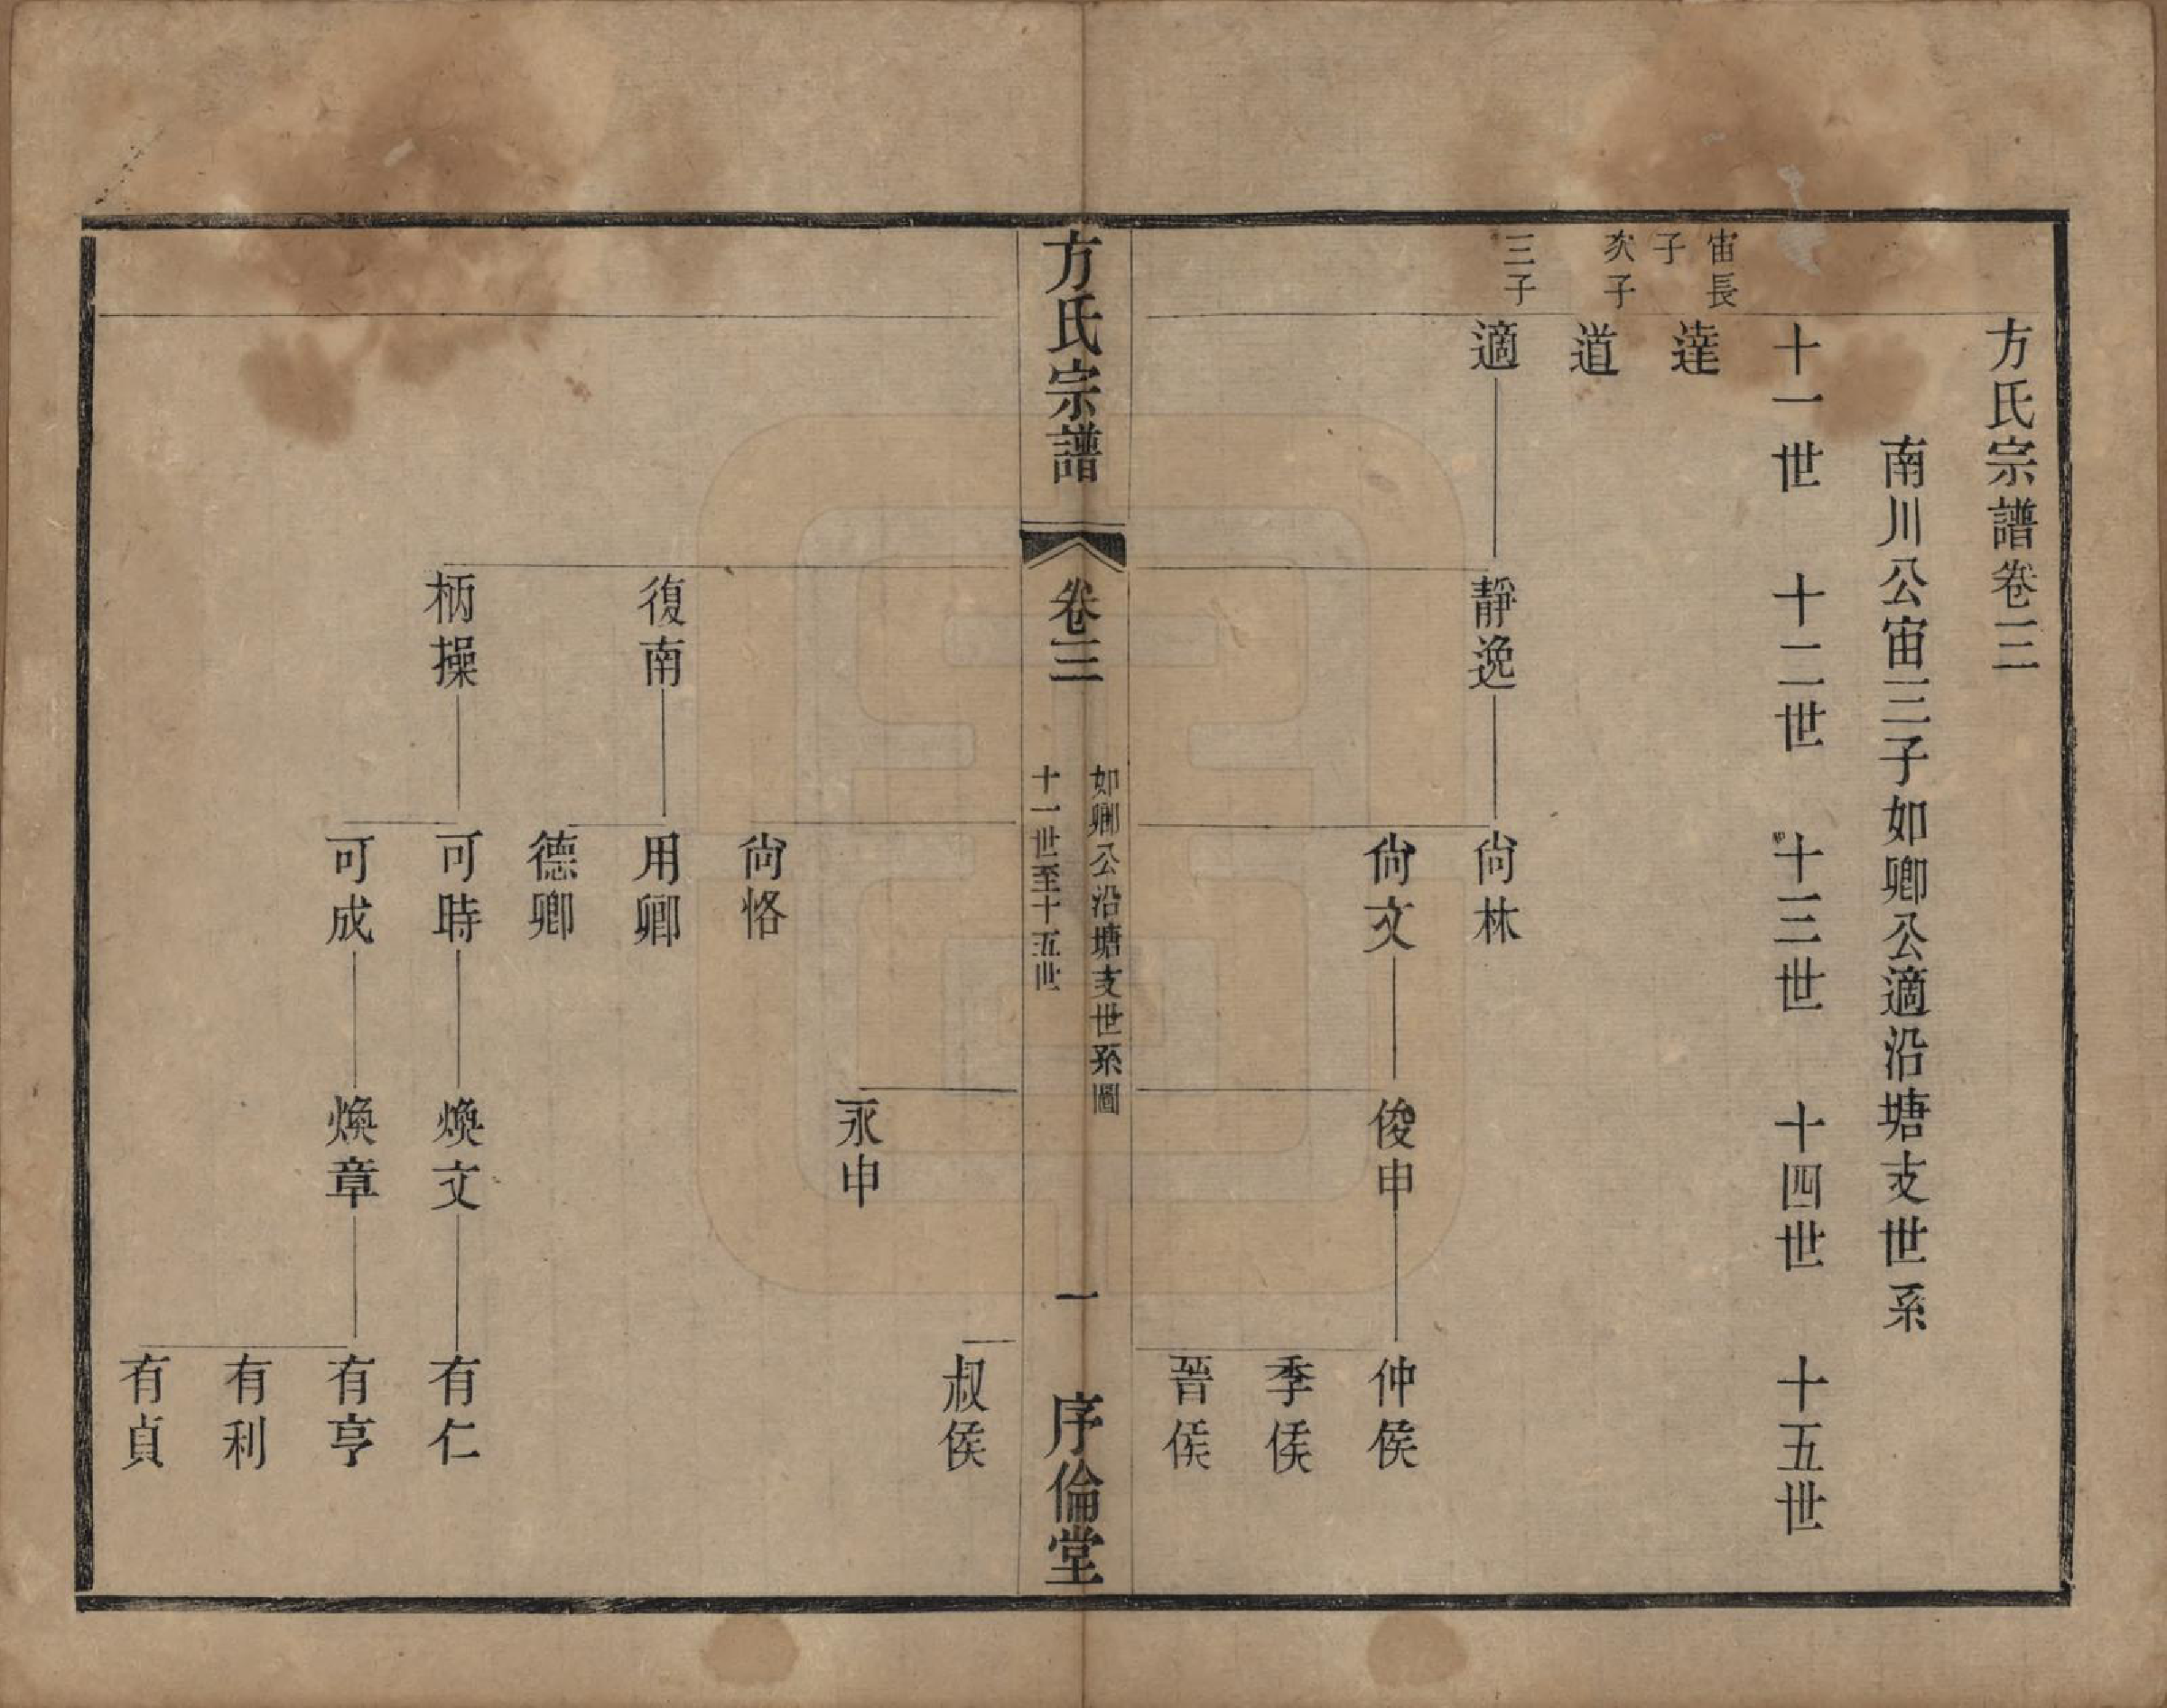 方氏宗譜卷三
南川公宙三子如卿公適沿塘支世系
十一世 十二世 十三世 十四世 十五世
宙長子 達
次子 道
三子 適 靜逸 尙林
尙文 俊申 仲侯
季侯
晉侯
方氏宗譜 卷三 如卿公沿塘支世系圖 十一世至十五世 一 序倫堂
叔侯
永申
尙恪
復南 用卿
德卿
柄操 可時 煥文 有仁
可成 煥章 有亨
有利
有貞